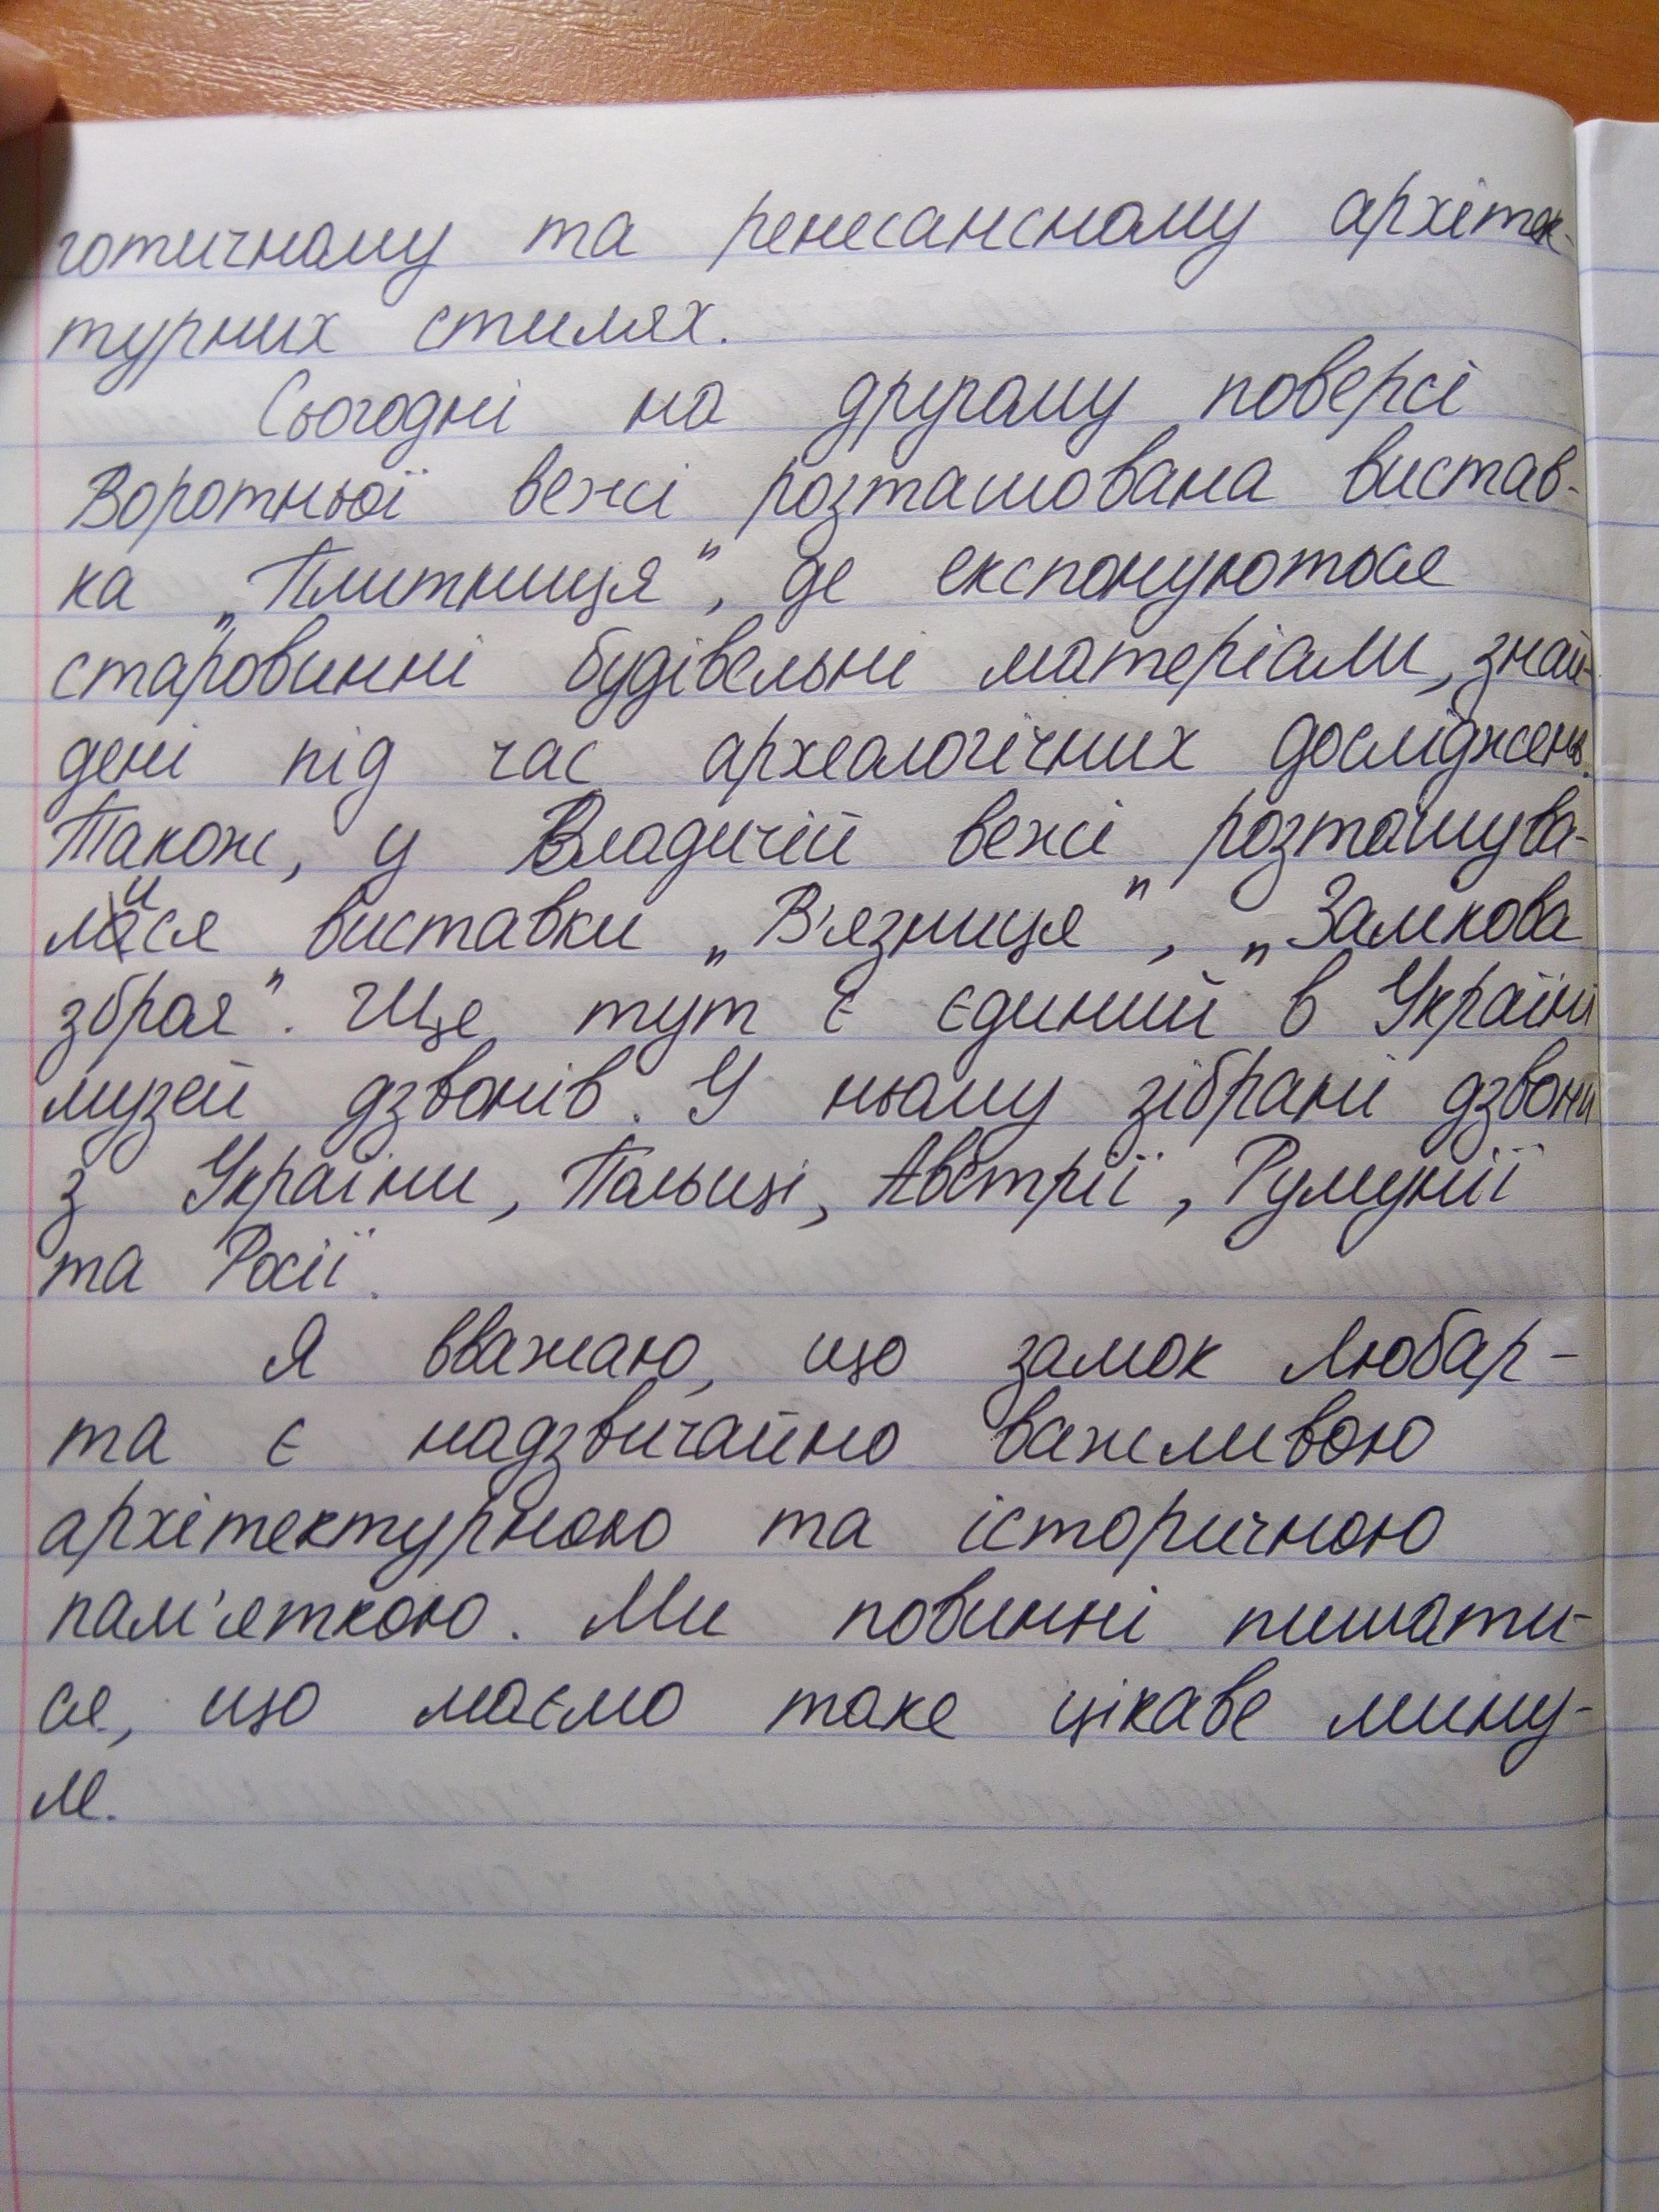 готичному та ренесансному архітек-
турних стилях.
Сьогодні на другому поверсі
Воротньої вежі розташована вистав-
ка „Плитниця", де експонуються
старовинні будівельні матеріали, знай-
дені під час археологічних досліджень.
Також, у Владичій вежі розташува-
лися виставки „В'язниця", „Замкова
зброя". Ще тут є єдиний в Україні
музей дзвонів. У ньому зібрані дзвони
з України, Польщі, Австрії, Румунії
та Росії.
Я вважаю, що замок Любар-
та є надзвичайно важливою
архітектурною та історичною
пам'яткою. Ми повинні пишати-
ся, що маємо таке цікаве мину-
ле.